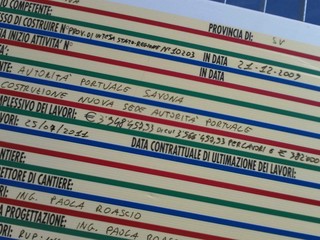 COMPETENTE:
PROVINCIA DI: SV
SSO DI COSTRUIRE N° PROV. DI INTESA STATO-REGIONE N° 10203 IN DATA 21-12-2009
IA INIZIO ATTIVITA' N° IN DATA
NTE: AUTORITÀ PORTUALE SAVONA
COSTRUZIONE NUOVA SEDE AUTORITÀ PORTUALE
MPLESSIVO DEI LAVORI: € 3'948'450,93 DI CUI 3'566'450,93 PER LAVORI E € 382'000
VORI: 25/07/2011 DATA CONTRATTUALE DI ULTIMAZIONE DEI LAVORI:
ANTIERE:
ETTORE DI CANTIERE:
RI: ING. PAOLA ROASCIO
A PROGETTAZIONE: ING. PAOLA ROASCIO
RI: RUP: